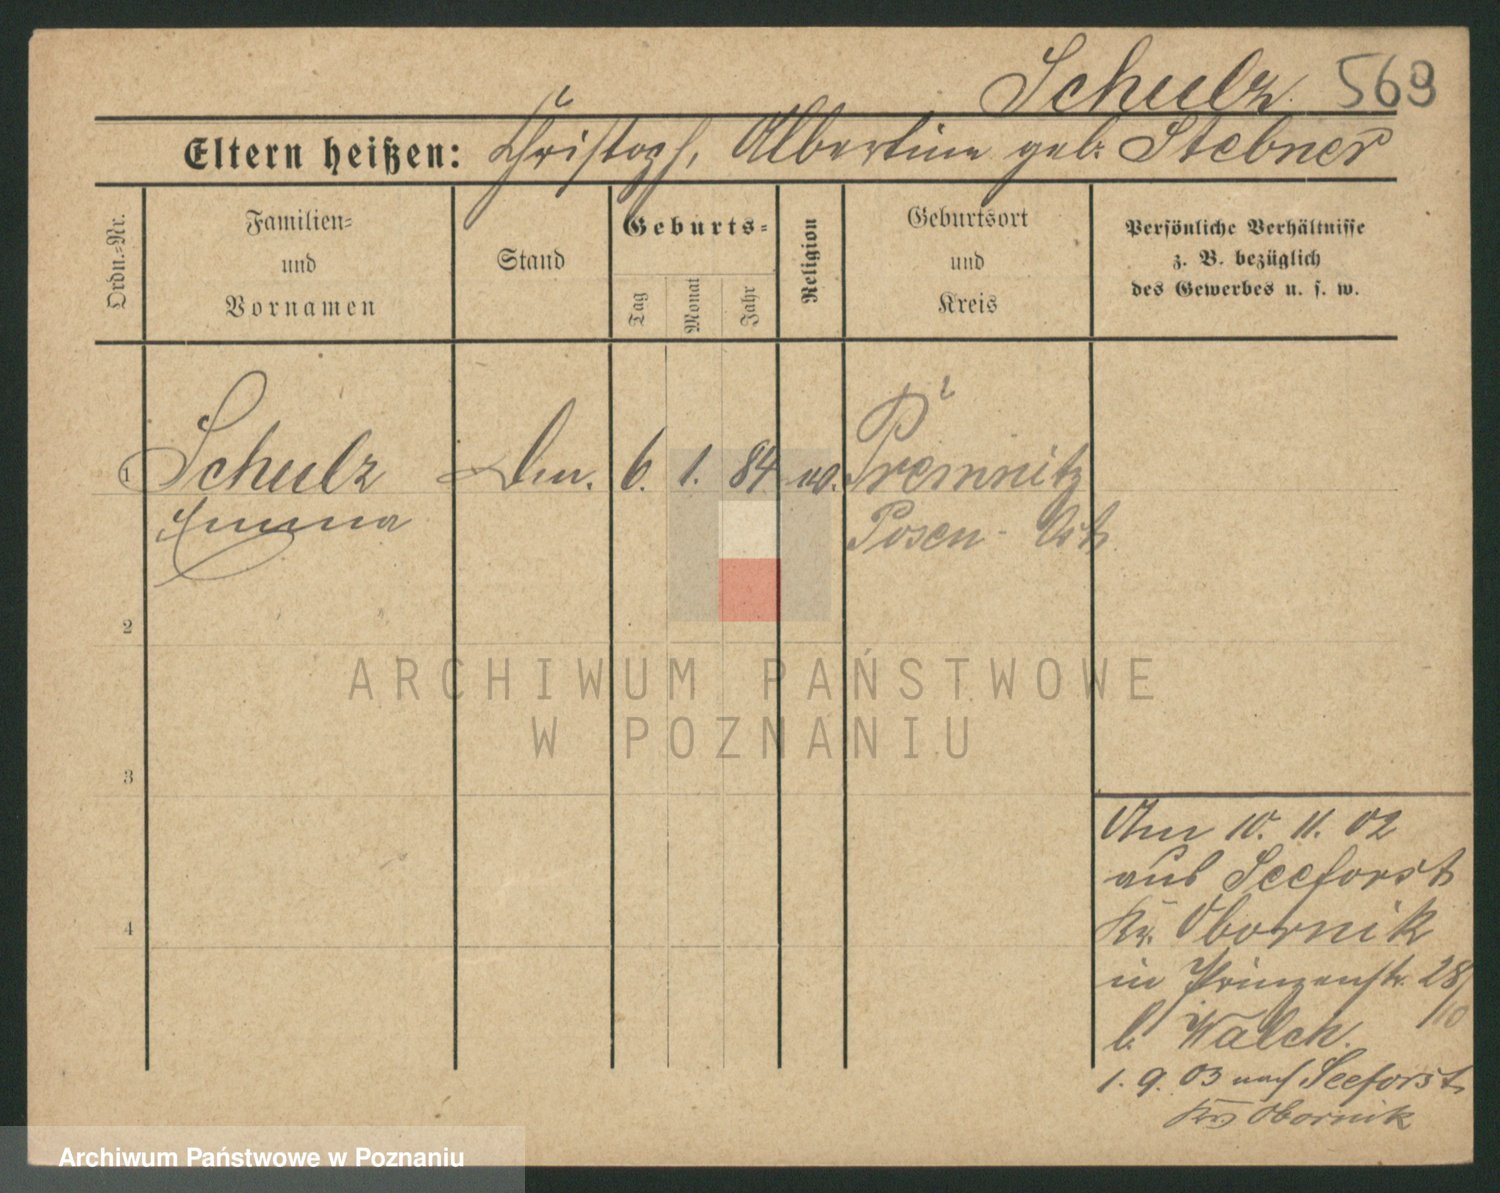 Schulz. 569
Eltern heißen: Christoph, Albertine geb. Stebner
Ordn.-Nr.
Familien-
und
Vornamen
Stand
Geburts-
Tag
Monat
Jahr
Religion
Geburtsort
und
Kreis
Persönliche Verhältnisse
z. B. bezüglich
des Gewerbes u. s. w.
1 Schulz 6. 1. 84 Premnitz
Emma Posen-
2
3
4
Am 10. 11. 02
aus Seeforst
Kr. Obornik
in Prinzenstr. 28/
10
b. Walch.
1. 9. 03 nach Seeforst
Obornik
ARCHIWUM PAŃSTWOWE
W POZNANIU
Archiwum Państwowe w Poznaniu